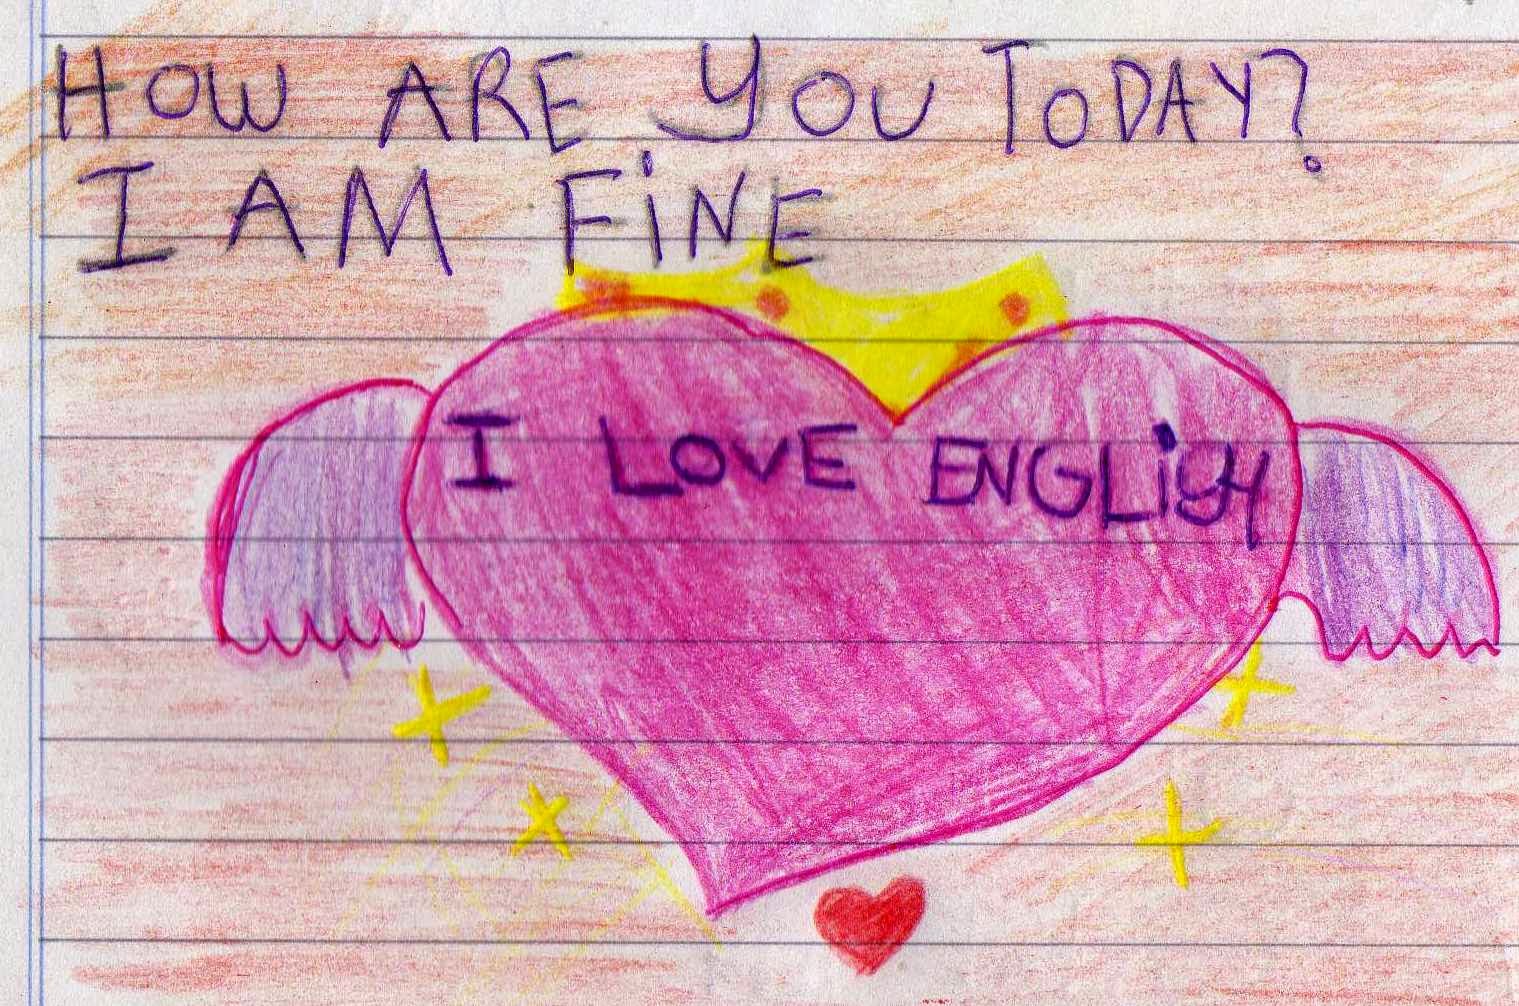 HOW ARE YOU TODAY?
I AM FiNE
I LOVE ENGLiSH